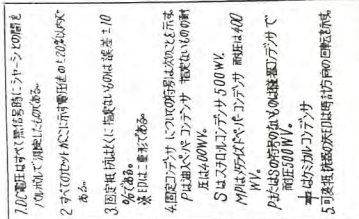 1. DC電圧はすべて無信号時にシャーシとの間を
バルボルで測定したものである。
2. すべてのセットがここに示す電圧値の±20%以内で
ある。
3. 固定抵抗はとくに指定ないものは誤差±10
%である。
※印は二重形である。
4. 固定コンデンサについての符号は次のことを示す。
Pは油入ペーパーコンデンサ 指定ないもの耐
圧は600WV。
Sはスチロールコンデンサ500WV。
MPはメタライズドペーパーコンデンサ 耐圧は400
WV。
PまたはSの符号のないものは磁器コンデンサで
耐圧500WV。
はケミカルコンデンサ
5. 可変抵抗器の矢印は時計方向の回転を示す。